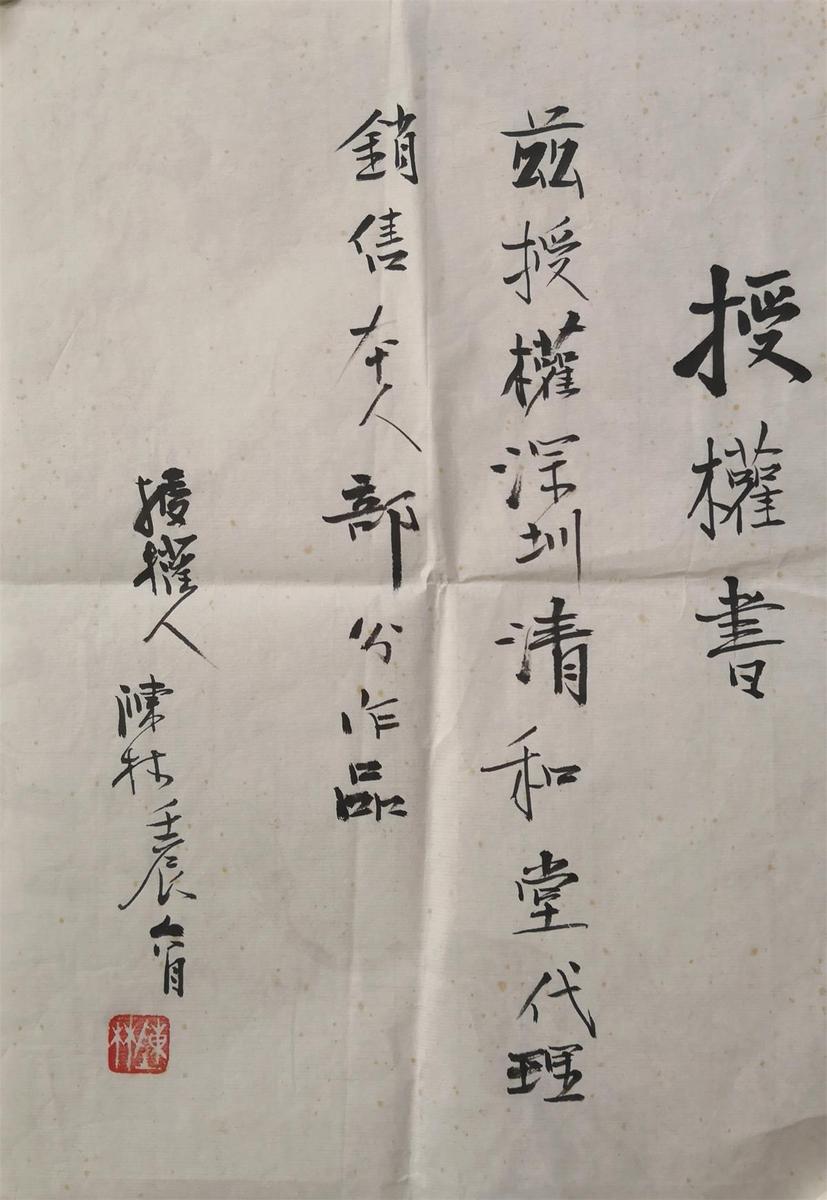 授權書
兹授權深圳清和堂代理
銷售本人部份作品
授權人 陳林 壬辰